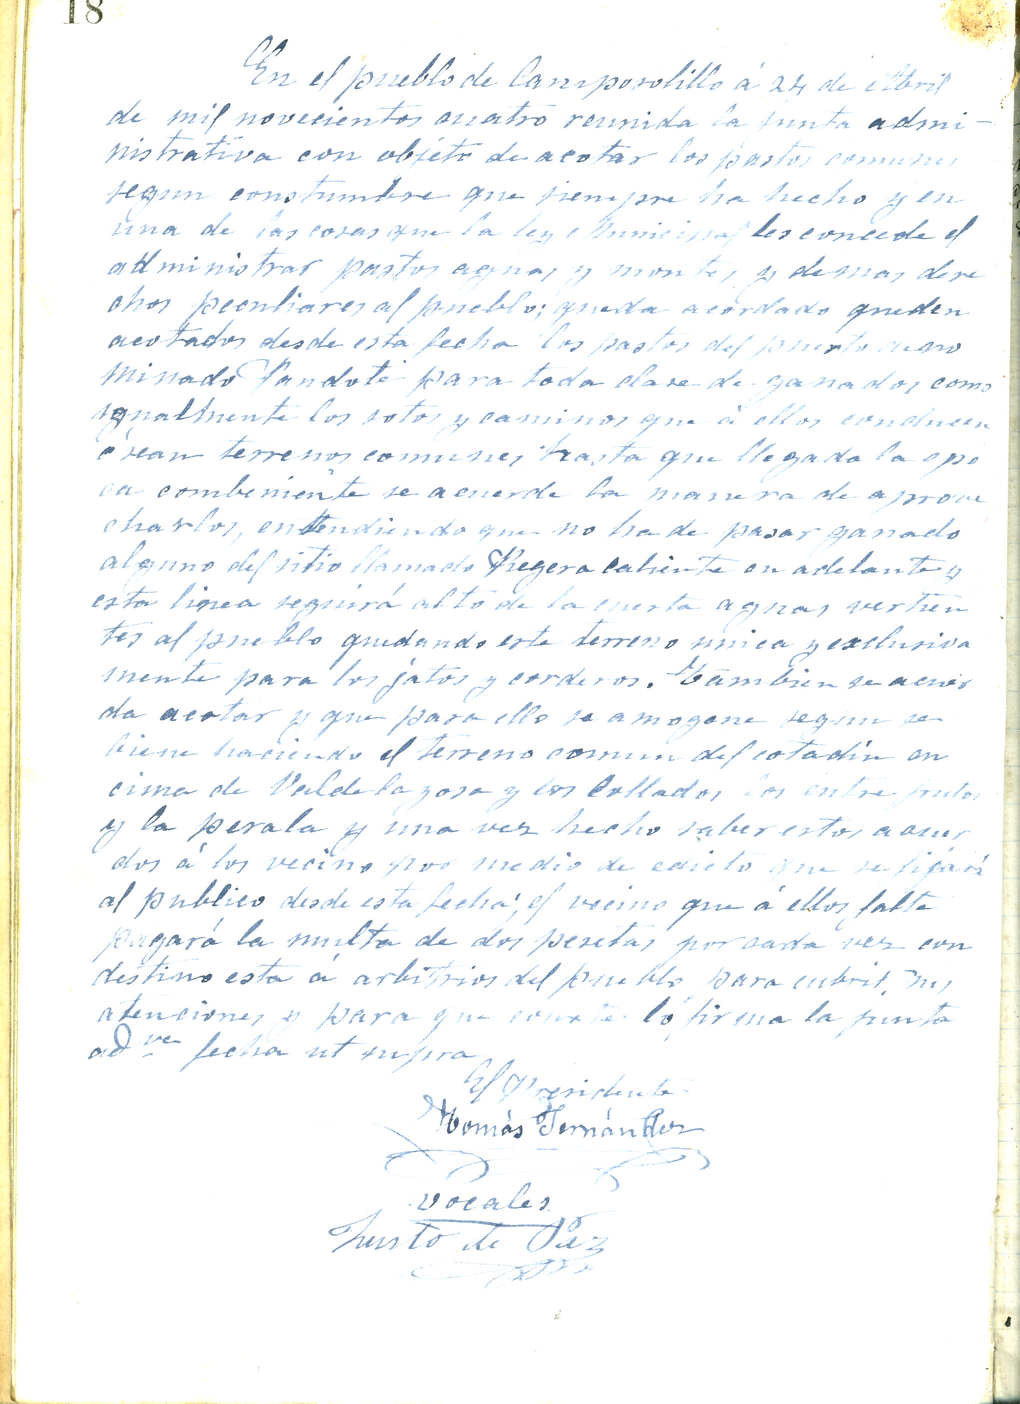 18
En el pueblo de Camposolillo á 24 de Abril
de mil novecientos cuatro reunida la Junta admi-
nistrativa con objeto de acotar los pastos comunes
segun constumbre que siempre ha hecho y en
una de las cosas que la ley Municipal les concede el
administrar pastos aguas y montes y demas dere
chos peculiares al pueblo; queda acordado queden
acotados desde esta fecha los pastos del puerto deno
minado Pandote para toda clase de ganados como
igualmente los sotos y caminos que á ellos conducen
ó sean terrenos comunes hasta que llegada la epo
ca combeniente se acuerde la manera de aprove
charlos, entendiendo que no ha de pasar ganado
alguno del sitio llamado Regera caliente en adelante y
esta linea seguirá alto de la cuesta aguas vertien
tes al pueblo quedando este terreno unica y exclusiva
mente para los jatos y corderos. Tambien se acuer
da acotar y que para ello se amogone segun se
biene haciendo el terreno comun del cotadin en
cima de Valdelayosa y los Collados los entre frutos
y la perala y una vez hecho saber estos acuer
dos á los vecino por medio de edicto que se fijará
al publico desde esta fecha, el vecino que á ellos falte
pagará la multa de dos pesetas por cada vez con
destino esta á arbitrios del pueblo para cubrir sus
atenciones y para que conste lo firma la junta
adve fecha ut supra
El Presidente
Tomás Fernández
Vocales
Justo de Paz